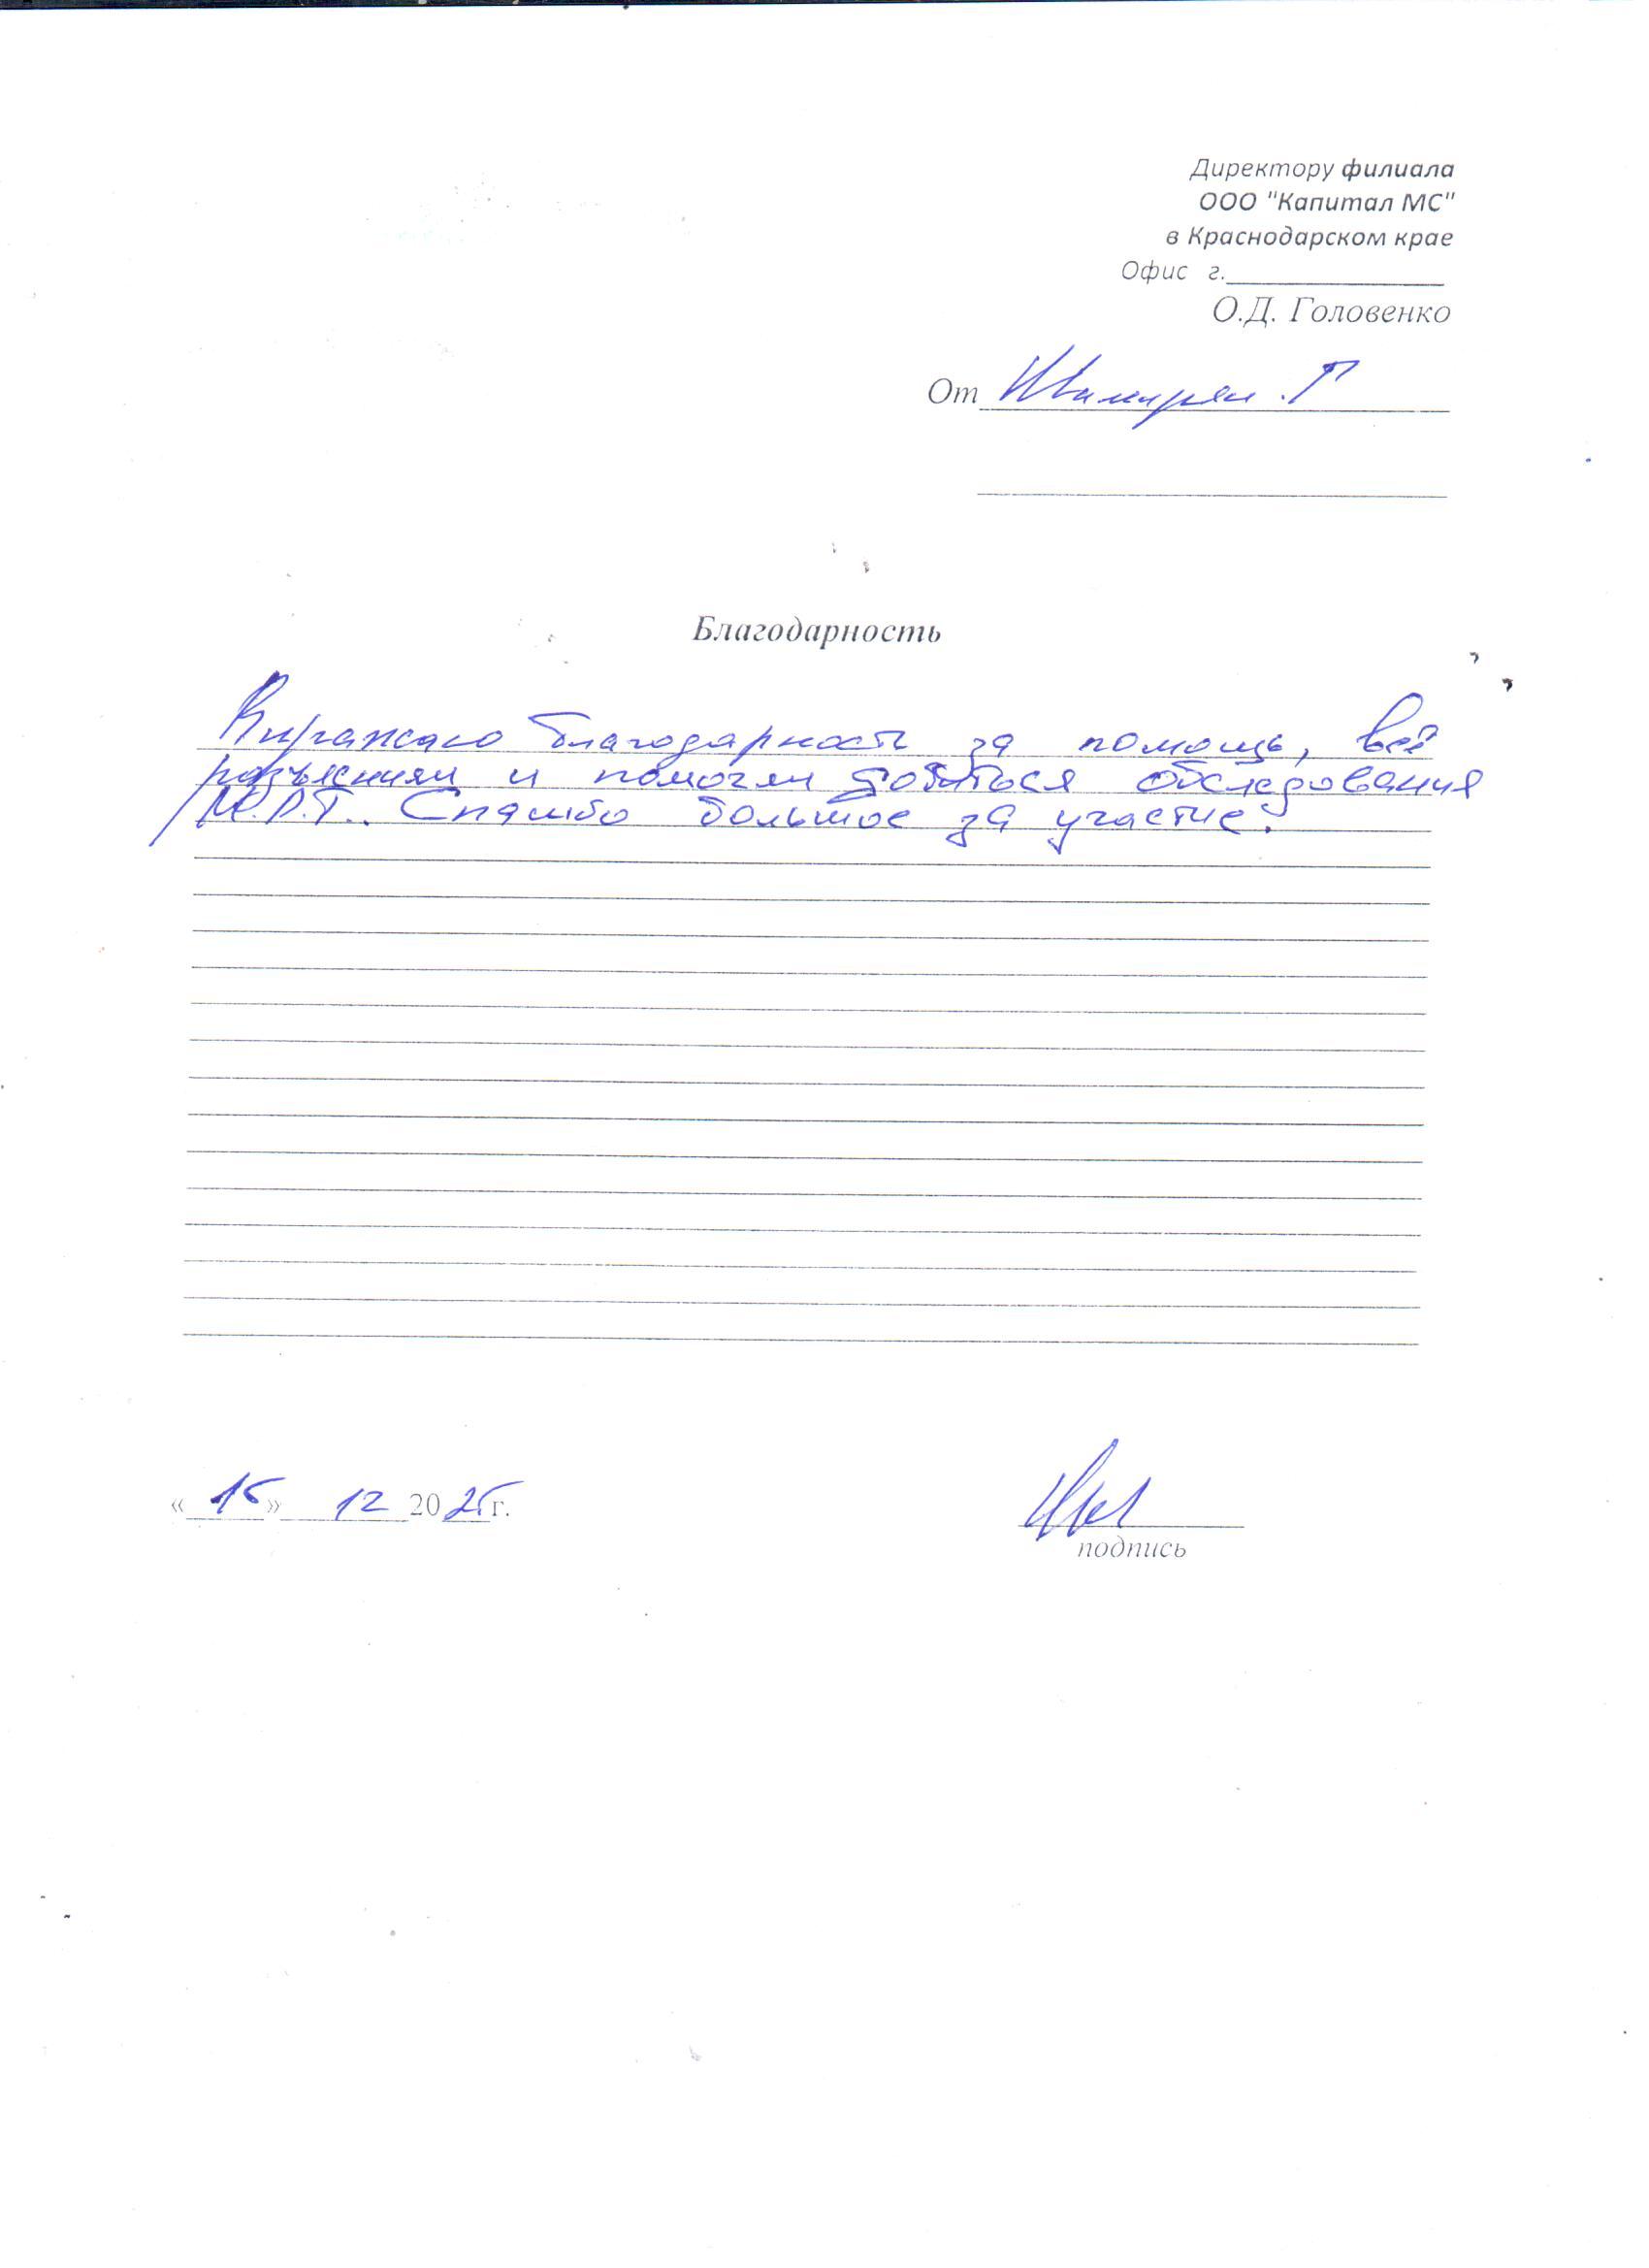 Директору филиала
ООО "Капитал МС"
в Краснодарском крае
Офис г.
О.Д. Головенко
От
Благодарность
Выражаю благодарность за помощь, всё
разъяснили и помогли добиться обследования
М.Р.Т.. Спасибо большое за участие.
«15» 12 2025г.
подпись